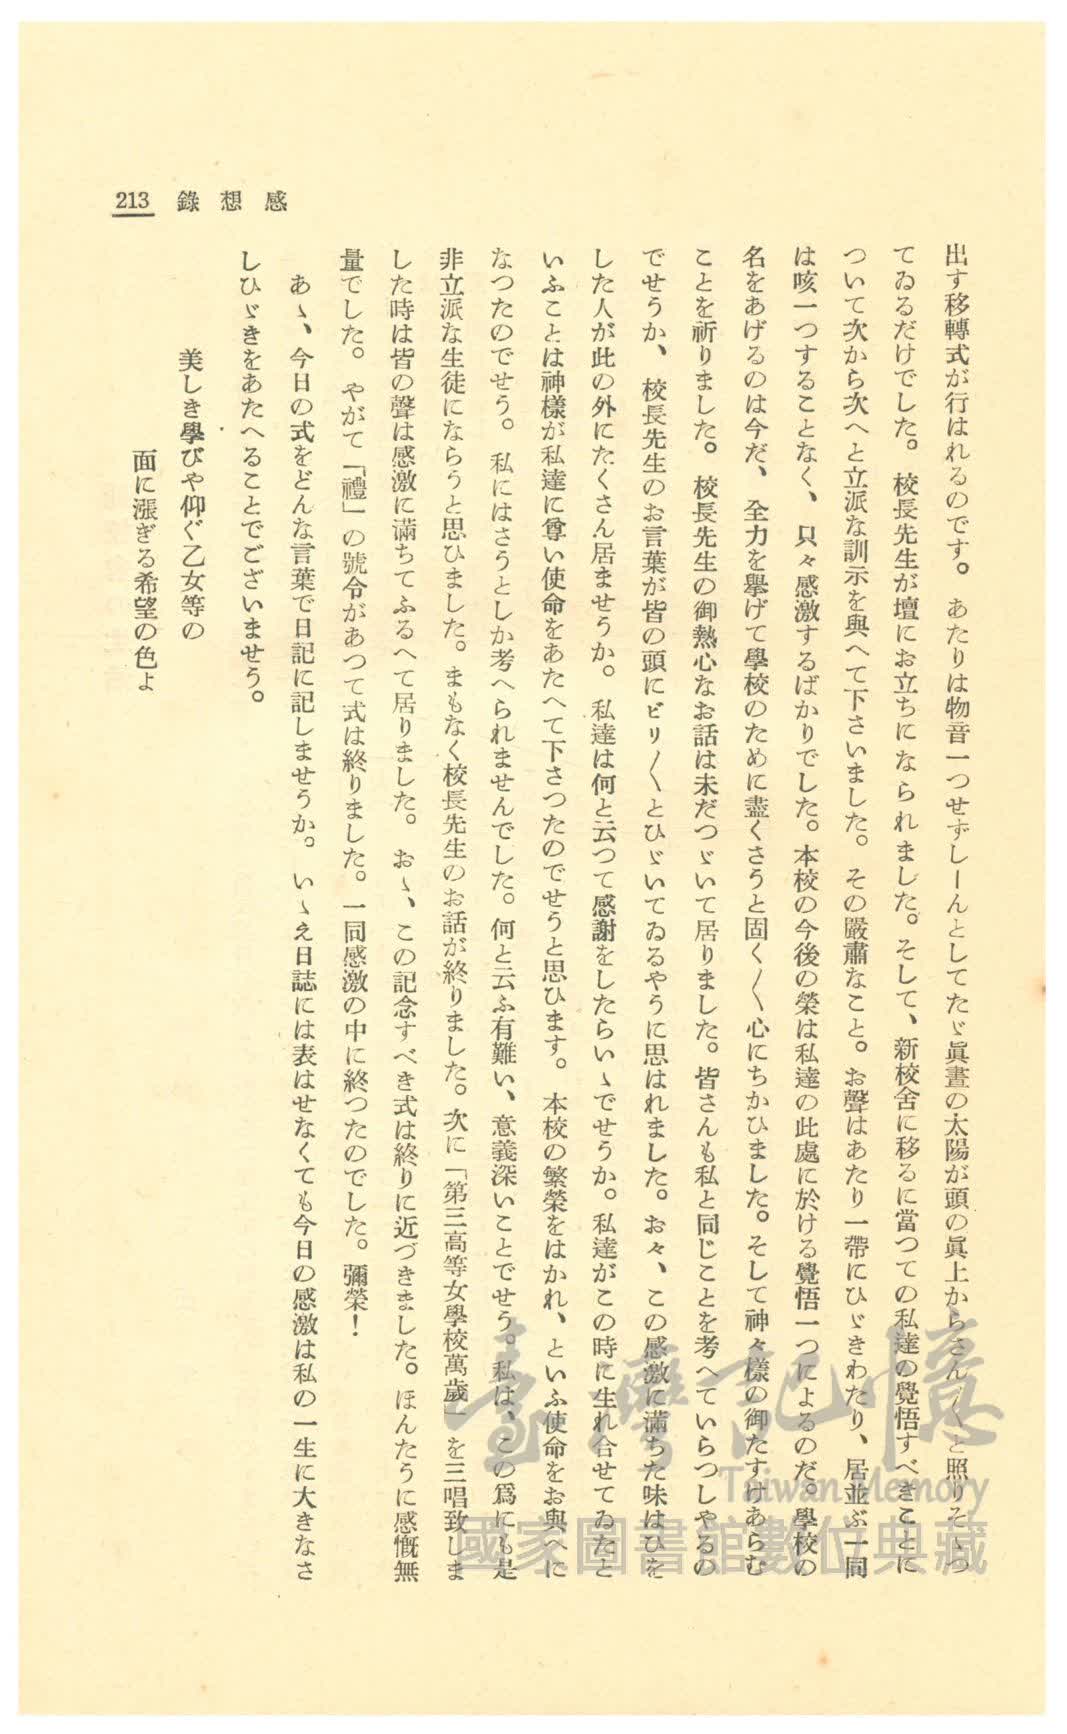 感想錄 213
出す移轉式が行はれるのです。あたりは物音一つせずしーんとしてたゞ眞晝の太陽が頭の眞上からさん〴〵と照りそゝつ
てゐるだけでした。校長先生が壇にお立ちになられました。そして、新校舍に移るに當つての私達の覺悟すべきことに
ついて次から次へと立派な訓示を與へて下さいました。その嚴肅なこと。お聲はあたり一帶にひゞきわたり、居並ぶ一同
は咳一つすることなく、只々感激するばかりでした。本校の今後の榮は私達の此處に於ける覺悟一つによるのだ。學校の
名をあげるのは今だ、全力を擧げて學校のために盡くさうと固く〳〵心にちかひました。そして神々樣の御たすけあらむ
ことを祈りました。校長先生の御熱心なお話は未だつゞいて居りました。皆さんも私と同じことを考へていらつしやるの
でせうか、校長先生のお言葉が皆の頭にビリ〳〵とひゞいてゐるやうに思はれました。お々、この感激に滿ちた味はひを
した人が此の外にたくさん居ませうか。私達は何と云つて感謝をしたらいゝでせうか。私達がこの時に生れ合せてゐたと
いふことは神樣が私達に尊い使命をあたへて下さつたのでせうと思ひます。本校の繁榮をはかれ、といふ使命をお與へに
なつたのでせう。私にはさうとしか考へられませんでした。何と云ふ有難い、意義深いことでせう。私は、この爲にも是
非立派な生徒にならうと思ひました。まもなく校長先生のお話が終りました。次に「第三高等女學校萬歲」を三唱致しま
した時は皆の聲は感激に滿ちてふるへて居りました。おゝ、この記念すべき式は終りに近づきました。ほんたうに感慨無
量でした。やがて「禮」の號令があつて式は終りました。一同感激の中に終つたのでした。彌榮！
あゝ、今日の式をどんな言葉で日記に記しませうか。いゝえ日誌には表はせなくても今日の感激は私の一生に大きなさ
しひゞきをあたへることでございませう。
美しき學びや仰ぐ乙女等の
面に漲ぎる希望の色よ
臺灣記憶
Taiwan Memory
國家圖書館數位典藏